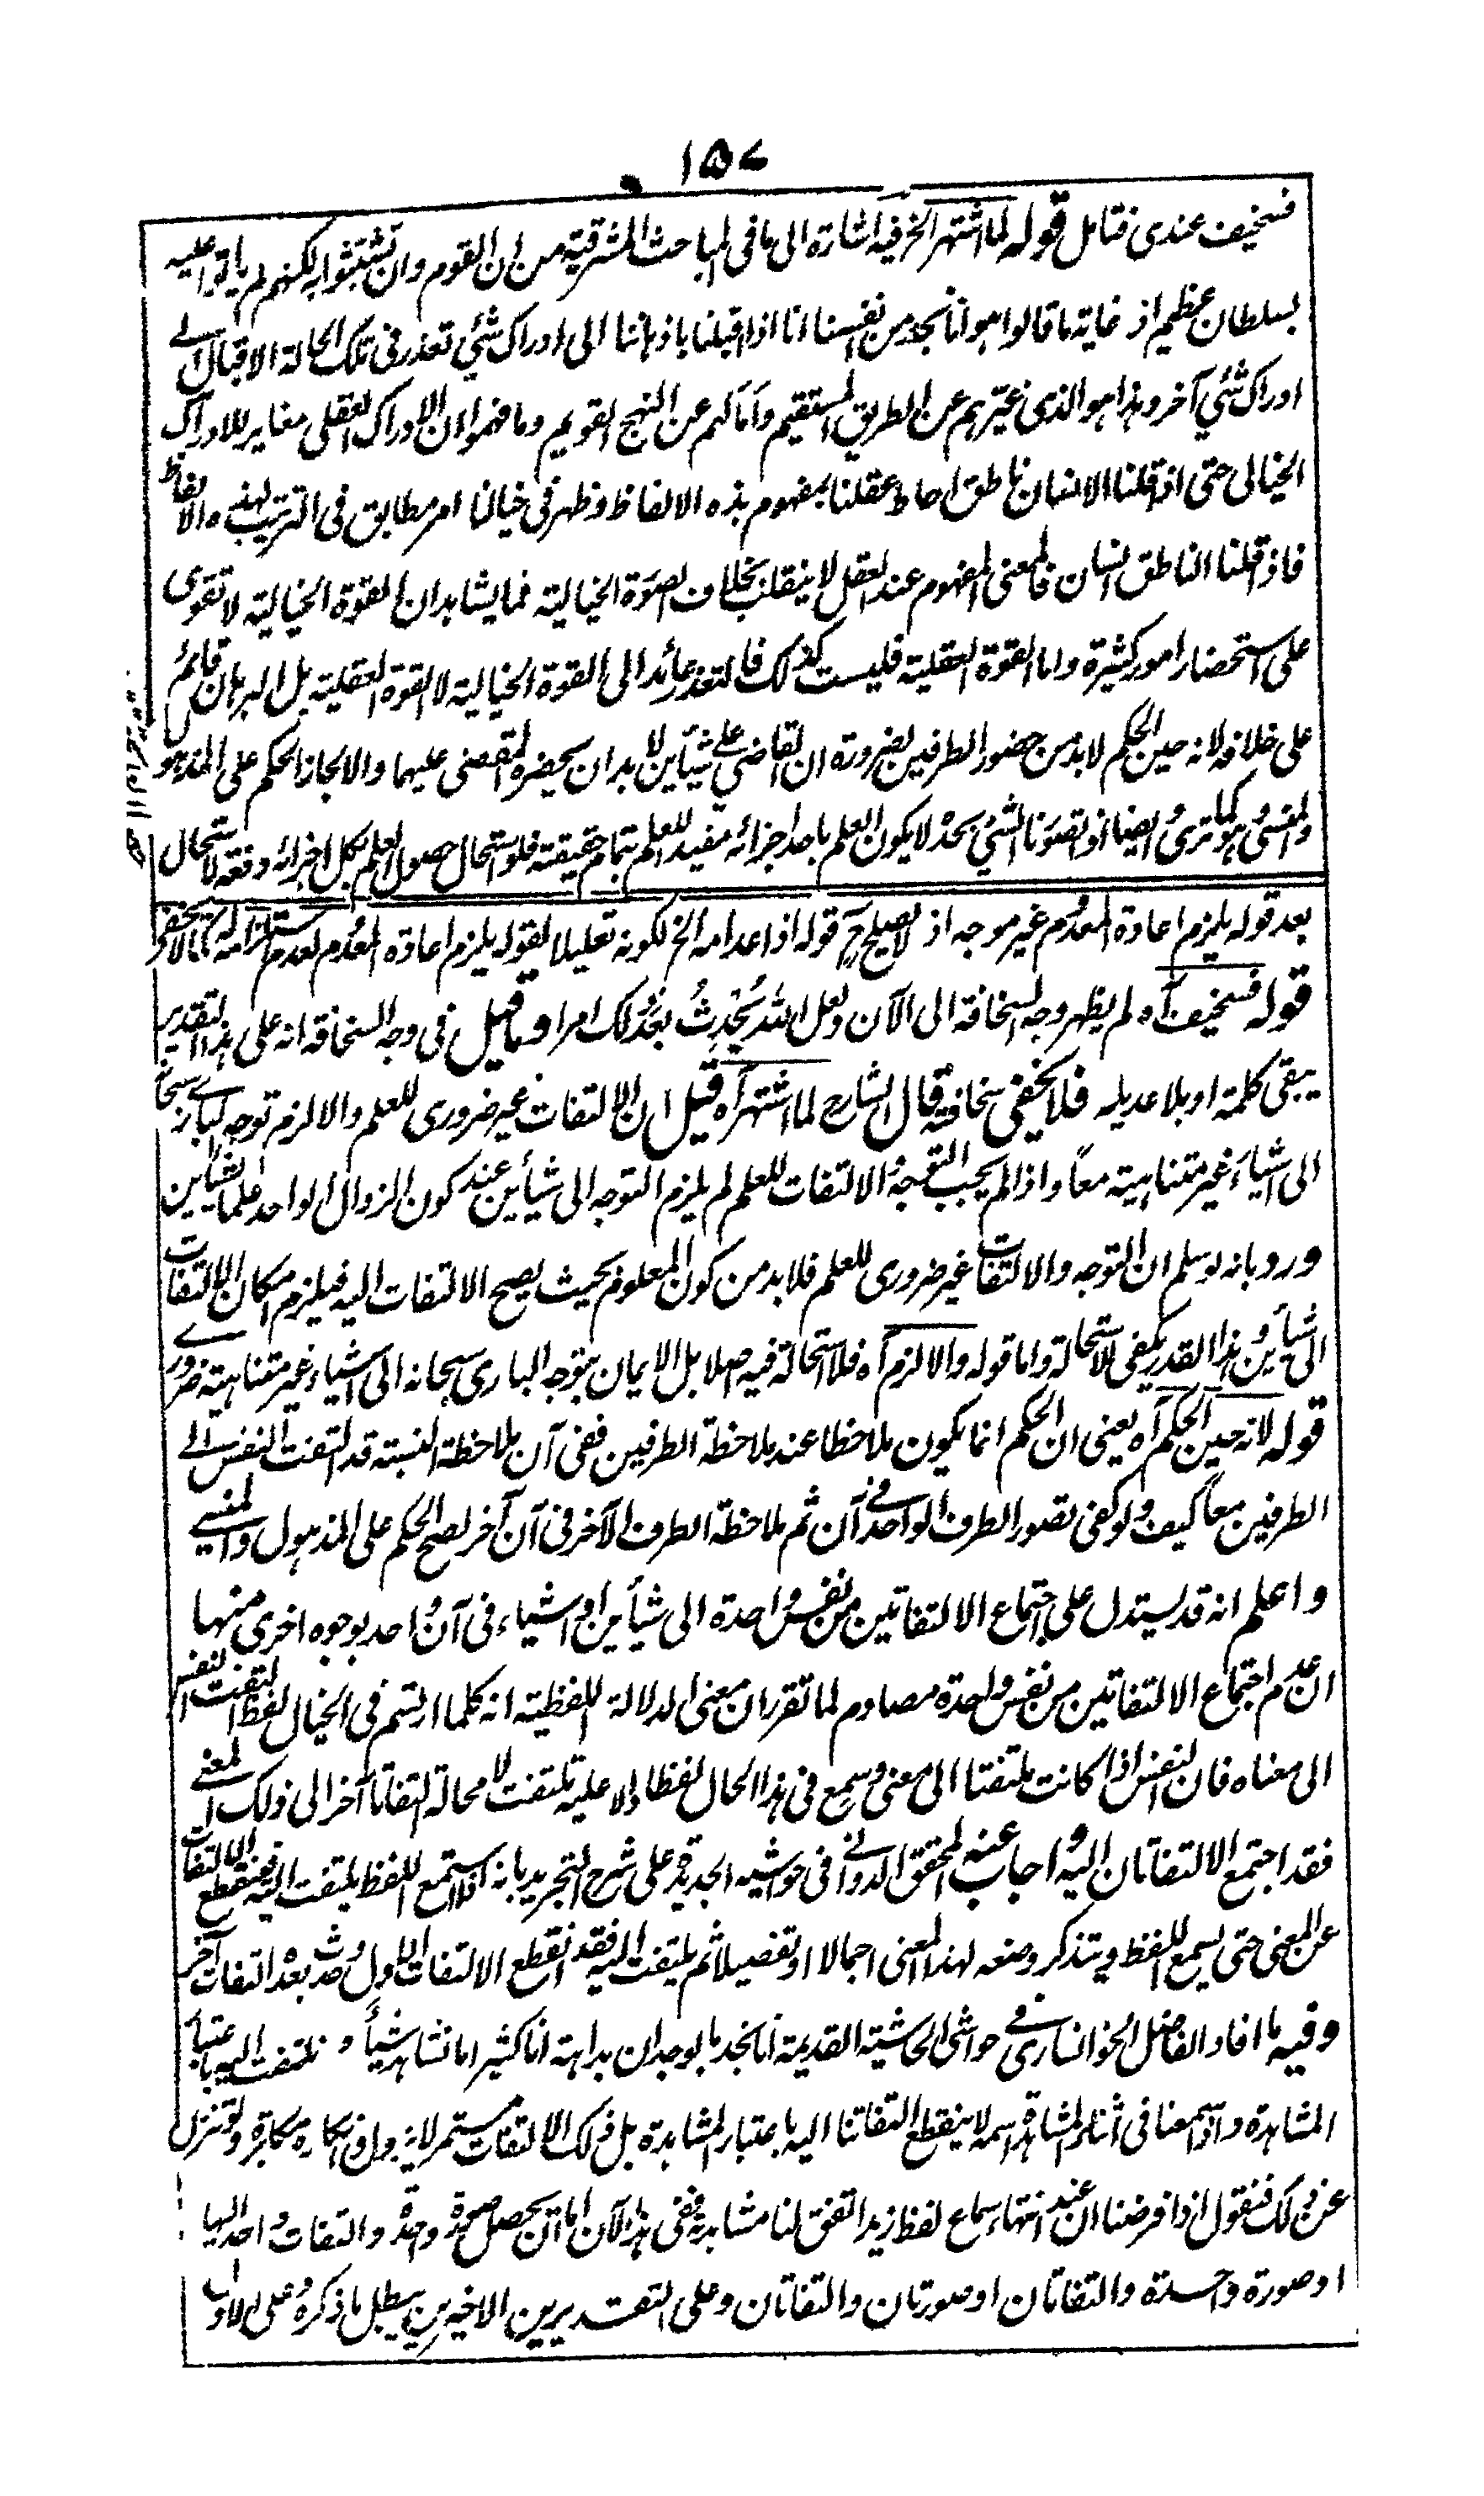 ١٥٧
فسخيف عندى فتامل قوله لما اشتهر الخ فيه اشارة الى ما فى المباحث المشرقية من ان القوم وان تشبثوا به لكنهم لم ياتوا عليه
بسلطان عظيم اذ غاية ما قالوا هو انا نجد من نفسنا انا اذا اقبلنا باذهاننا الى ادراك شئ تعذر فى تلك الحالة الاقبال الے
ادراك شئ آخر وهذا هو الذى غيّرهم عن الطريق المستقيم واَمالهم عن النهج القويم وما فهموا ان الادراك العقلى مغاير للادراك
الخيالى حتى اذا قلنا الانسان ناطق احاط عقلنا بمفهوم هذه الالفاظ وظهر فى خيالنا امر مطابق فى الترتيب لهذه الالفاظ
فاذا قلنا الناطق انسان فالمعنى المفهوم عند العقل لا ينقلب بخلاف الصورة الخيالية فما يشاهد ان القوة الخيالية لا تقوى
على استحضار امور كثيرة واما القوة العقلية فليست كذلك فالتعذر عائد الى القوة الخيالية لا القوة العقلية بل البرهان قائم
على خلافه لانه حين الحكم لا بد من حضور الطرفين بضرورة ان القاضى على شيأين لا بد ان يحضره المقضى عليهما والا لجاز الحكم على المذهول
والمنسى وهو كما ترى وايضا اذا تصورنا الشئ بحد لا يكون العلم باحد اجزائه مفيد للعلم بتمام حقيقته فلو استحال حصول العلم بكل اجزائه دفعة لاستحال
بعد قوله يلزم اعادة المعدوم غير موجه اذ لا يصلح ح قوله اذا عدامه الخ لكونه تعليلا لقوله يلزم اعادة المعدوم لعدم استلزامه له كما لا يخفى
قوله فسخيف آه لم يظهر وجه السخافة الى الآن ولعل الله يُحْدِثُ بَعْدَ ذلك امرا وما قيل فى وجه السخافة انه على هذا التقدير
يبقى كلمة او بلا عديله فلا يخفى سخافته قال الشارح لما اشتهر آه قيل ان الالتفات غير ضرورى للعلم والا لزم توجه البارے سبحانه
الى اشياءَ غير متناهية معاً واذا لم يجب التوجه والالتفات للعلم لم يلزم التوجه الى شيأين عند كون الزوال الواحد علما بشيأين
ورد بانه لو سلم ان التوجه والالتفات غير ضرورى للعلم فلا بد من كون المعلوم بحيث يصح الالتفات اليه فيلزم امكان الالتفات
الى شيأين وهذا القدر يكفى لاستحالة واما قوله والا لزم آه فلا استحالة فيه اصلا بل الايمان بتوجه البارى سبحانه الى اشياء غير متناهية ضرورے
قوله لانه حين الحكم آه يعنى ان الحكم انما يكون ملاحظا عند ملاحظة الطرفين ففى آن ملاحظة النسبة قد التفت النفس الے
الطرفين معاً كيف ولو كفى تصور الطرف الواحد فى آن ثم ملاحظة الطرف الآخر فى آن آخر لصح الحكم على المذهول والمنسے
واعلم انه قد يستدل على اجتماع الالتفاتين من نفس واحدة الى شيأين او اشياء فى آن واحد بوجوه اخرى منها
ان عدم اجتماع الالتفاتين من نفس واحدة مصادم لما تقرر ان معنى الدلالة اللفظية انه كلما ارتسم فى الخيال لفظ التفت النفس
الى معناه فان النفس اذا كانت ملتفتا الى معنى وسمع فى هذا الحال لفظا دالا عليه تلتفت لا محالة التفاتا آخر الى ذلك المعنے
فقد اجتمع الالتفاتان اليه واجاب عنه المحقق الدوانے فى حواشيه الجديدة على شرح التجريد بانه كلما استمع اللفظ يلتفت اليه فينقطع الالتفات
عن المعنى حتى يسمع اللفظ ويتذكر وضعه لهذا المعنى اجمالا او تفصيلا ثم يلتفت اليه فقد انقطع الالتفات الاول وحدث بعده التفات آخر
وفيه ما افاد الفاضل الخوانسارى فى حواشى الحاشية القديمة انا نجد بالوجدان بداهة انا كثيرا ما نشاهد شيأً ونلتفت اليه باعتبار
المشاهدة واذا سمعنا فى اثناء المشاهدة اسمه لا ينقطع التفاتنا اليه باعتبار المشاهدة بل ذلك الالتفات مستمر لا يزول وانكاره مكابرة ولو تنزل
عن ذلك فنقول اذا فرضنا ان عند انتهاء سماع لفظ زيد اتفق لنا مشاهدته ففى هذا الآن اما ان يحصل صورة واحدة والتفات واحد اليها
او صورة واحدة والتفاتان او صورتان والتفاتان وعلى التقديرين الاخيرين يبطل ما ذكره وعلى الاول